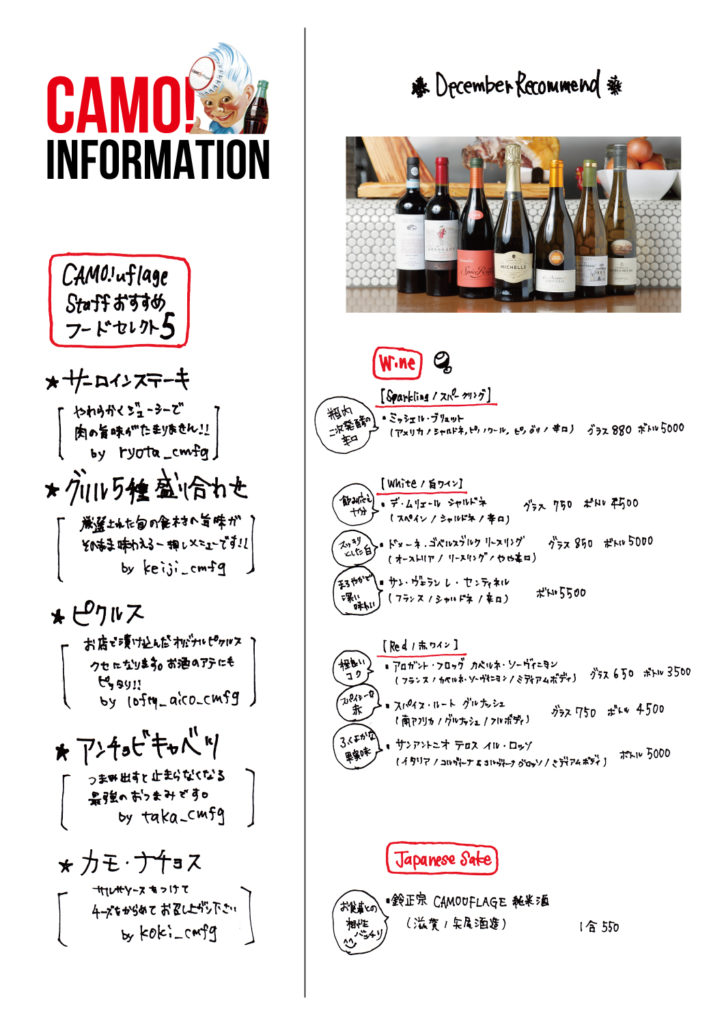 CAMO!
INFORMATION
CAMO!uflage
Staffおすすめ
フードセレクト5
★サーロインステーキ
やわらかくジューシーで
肉の旨味がたまりません!!
by ryota_cmfg
★グリル5種盛り合わせ
厳選された旬の食材の旨味が
そのまま味わえる一押しメニューです!!
by keiji_cmfg
★ピクルス
お店で漬け込んだオリジナルピクルス
クセになります。お酒のアテにも
ピッタリ!!
by lofty_aico_cmfg
★アンチョビキャベツ
つまみ出すと止まらなくなる
最強のおつまみです。
by taka_cmfg
★カモ・ナチョス
サルサソースをつけて
チーズをからめてお召し上がり下さい
by koki_cmfg
December Recommend
MICHELLE
Wine
[Sparkling / スパークリング]
瓶内
二次発酵の
辛口
・ミッシェル・ブリュット
(アメリカ / シャルドネ, ピノノワール, ピノグリ / 辛口) グラス 880 ボトル 5000
[White / 白ワイン]
飲み応え
十分
・デ・ムリエール シャルドネ グラス 750 ボトル 4500
(スペイン / シャルドネ / 辛口)
スッキリ
とした白
・ドメーネ・ゴベルスブルク リースリング グラス 850 ボトル 5000
(オーストリア / リースリング / やや辛口)
まろやかで
深い
味わい
・サン・ヴェラン レ・センティネル ボトル 5500
(フランス / シャルドネ / 辛口)
[Red / 赤ワイン]
程良い
コク
・アロガント・フロッグ カベルネ・ソーヴィニヨン グラス 650 ボトル 3500
(フランス / カベルネ・ソーヴィニヨン / ミディアムボディ)
スパイシーな
赤
・スパイス・ルート グルナッシュ グラス 750 ボトル 4500
(南アフリカ / グルナッシュ / フルボディ)
ふくよかな
果実味
・サンアントニオ テロス イル・ロッソ ボトル 5000
(イタリア / コルヴィーナ & コルヴィノーネ グロッソ / ミディアムボディ)
Japanese Sake
お食事との
相性
バッチリ
・鈴正宗 CAMOUFLAGE 純米酒
(滋賀 / 矢尾酒造) 1合 550